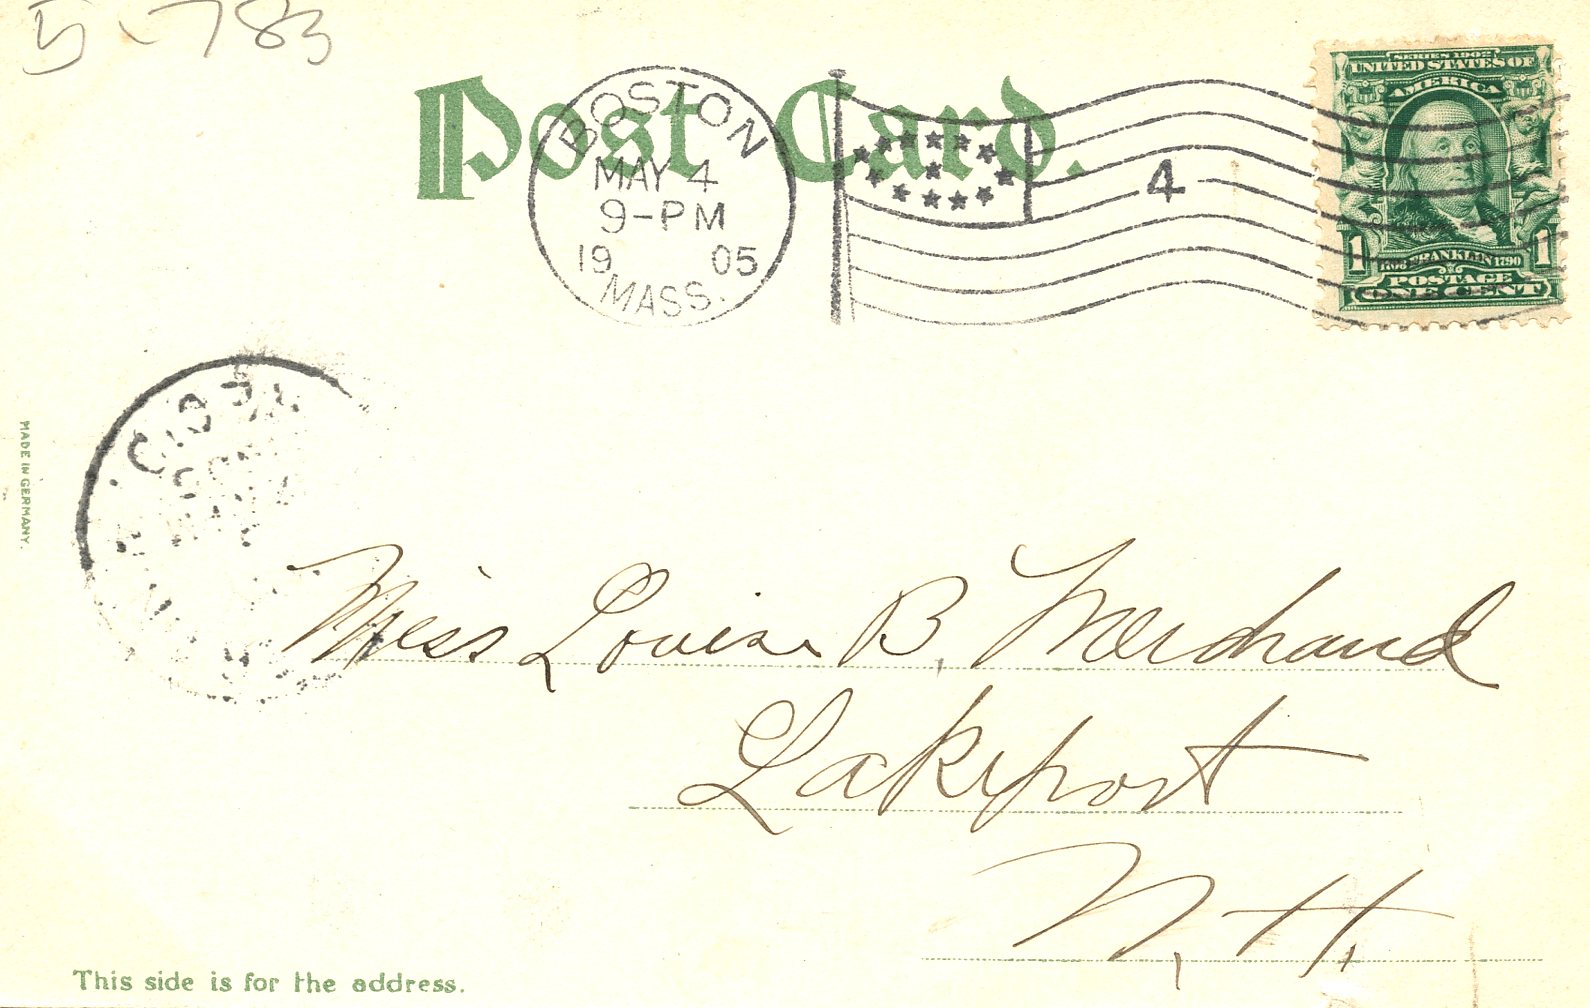 5-783
Post Card.
BOSTON
MAY 4
9-PM
19 05
MASS.
4
SERIES 1902
UNITED STATES OF
AMERICA
1 1
FRANKLIN 1790
POSTAGE
ONE CENT
MADE IN GERMANY.
Miss Louise B. Merchand
Lakeport
N. H.
This side is for the address.